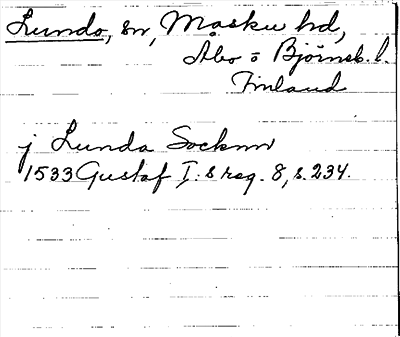 Lundo, sn, Masku hd,
Åbo o Björneb. l.
Finland
j Lunda Socknn
1533 Gustaf I:s reg. 8, s. 234.